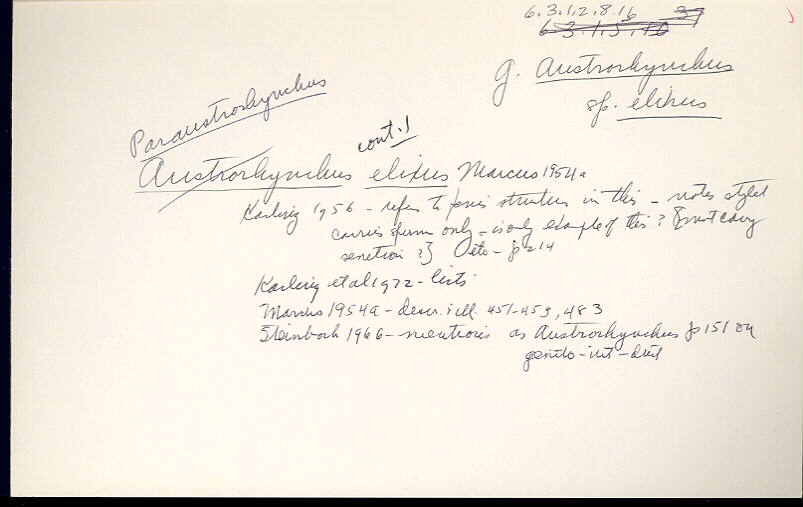 6.3.1.2.8.16 37
6.3.1.5.10
g. Austrorhynchus
sp. elixus
Paraustrorhynchus
cont.
Austrorhynchus elixus Marcus 1954a
Karling 1956 - refers to penis structure in this - notes stylet
carries sperm only - is only example of this? & not carry
secretion?} Oeto - p 214
Karling et al 1972 - lists
Marcus 1954a - descr. ill. 451-453, 483
Steinbock 1966 - mentions as Austrorhynchus p 151 on
genito-int-duct